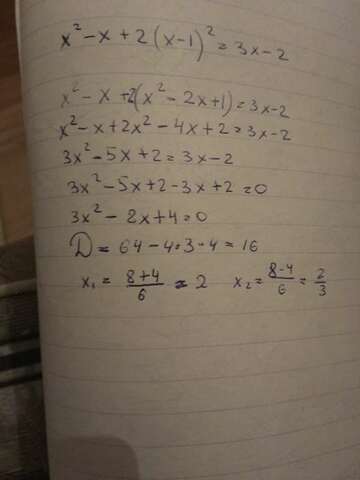 x² - x + 2(x-1)² = 3x - 2
x² - x + 2(x² - 2x + 1) = 3x - 2
x² - x + 2x² - 4x + 2 = 3x - 2
3x² - 5x + 2 = 3x - 2
3x² - 5x + 2 - 3x + 2 = 0
3x² - 8x + 4 = 0
D = 64 - 4·3·4 = 16
x₁ = (8+4)/6 = 2 x₂ = (8-4)/6 = 2/3